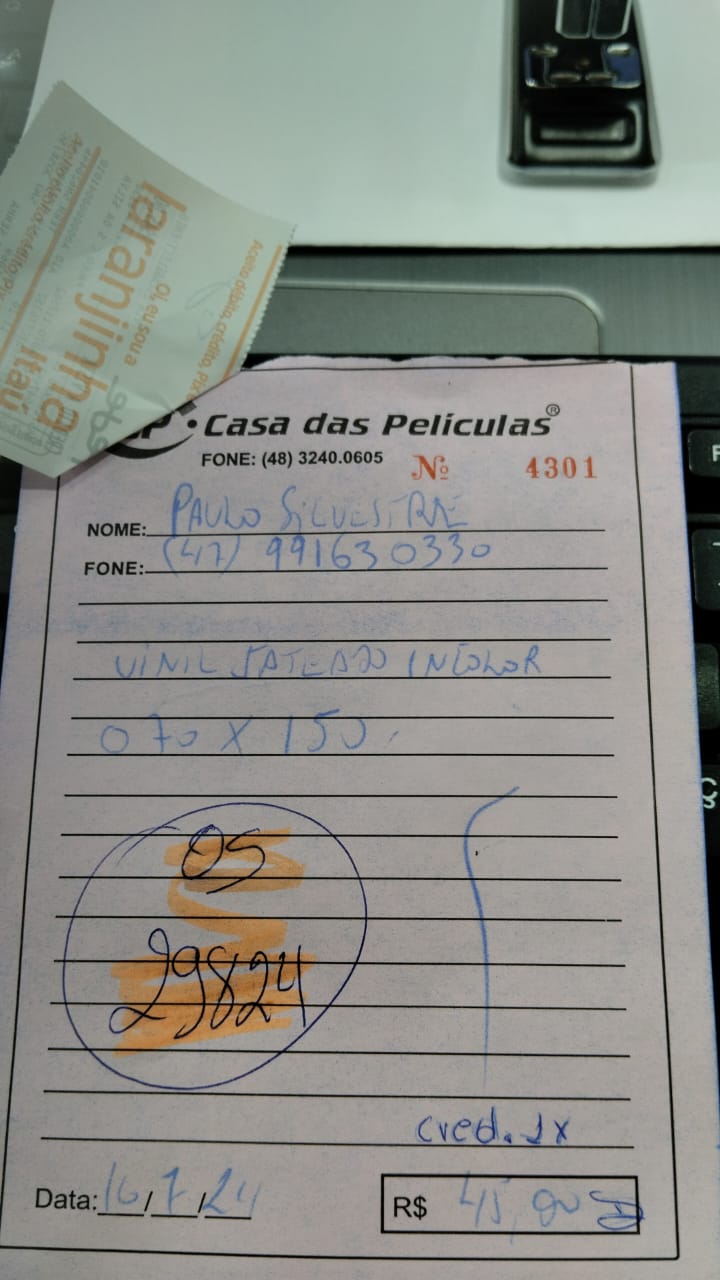 Aceito débito, crédito, PIX
Oi, eu sou a
laranjinha
Itaú
Casa das Películas®
FONE: (48) 3240.0605
Nº 4301
NOME: PAULO SILVESTRE
FONE: (47) 991630330
VINIL JATEADO INCOLOR
070 X 150
OS
29824
cred. 1x
Data: 16/7/24
R$ 45,00